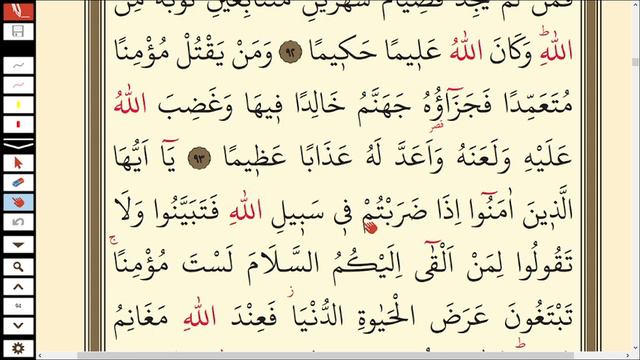 فَمَنْ لَمْ يَجِدْ فَصِيَامُ شَهْرَيْنِ مُتَتَابِعَيْنِ تَوْبَةً مِنَ
اللّٰهِۜ وَكَانَ اللّٰهُ عَل۪يمًا حَك۪يمًا ﴿٩٢﴾ وَمَنْ يَقْتُلْ مُؤْمِنًا
مُتَعَمِّدًا فَجَزَٓاؤُ۬هُ جَهَنَّمُ خَالِدًا ف۪يهَا وَغَضِبَ اللّٰهُ
عَلَيْهِ وَلَعَنَهُ وَاَعَدَّ لَهُ عَذَابًا عَظ۪يمًا ﴿٩٣﴾ يَٓا اَيُّهَا
الَّذ۪ينَ اٰمَنُٓوا اِذَا ضَرَبْتُمْ ف۪ي سَب۪يلِ اللّٰهِ فَتَبَيَّنُوا وَلَا
تَقُولُوا لِمَنْ اَلْقٰٓى اِلَيْكُمُ السَّلَامَ لَسْتَ مُؤْمِنًاۚ
تَبْتَغُونَ عَرَضَ الْحَيٰوةِ الدُّنْيَاۘ فَعِنْدَ اللّٰهِ مَغَانِمُ